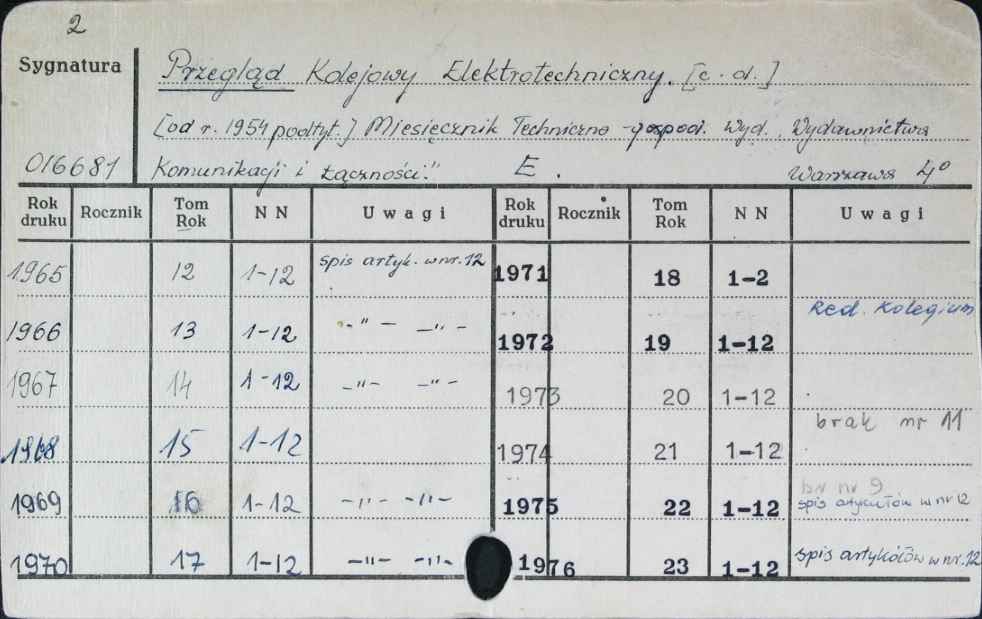 2
Sygnatura
Przegląd Kolejowy Elektrotechniczny. [c. d.]
[od r. 1954 podtyt.] Miesięcznik Techniczno-gospod. Wyd. Wydawnictwa
016681 Komunikacji i Łączności." E. Warszawa 4º
Rok druku Rocznik Tom Rok NN Uwagi Rok druku Rocznik Tom Rok NN Uwagi
1965 12 1-12 spis artyk. w nr. 12 1971 18 1-2
Red. Kolegium
1966 13 1-12 -"- -"- 1972 19 1-12
1967 14 1-12 -"- -"- 1973 20 1-12
brak nr 11
1968 15 1-12 1974 21 1-12
br nr 9
1969 16 1-12 -"- -"- 1975 22 1-12 spis artykułów w nr 12
1970 17 1-12 -"- -"- 1976 23 1-12 spis artykółów w nr. 12